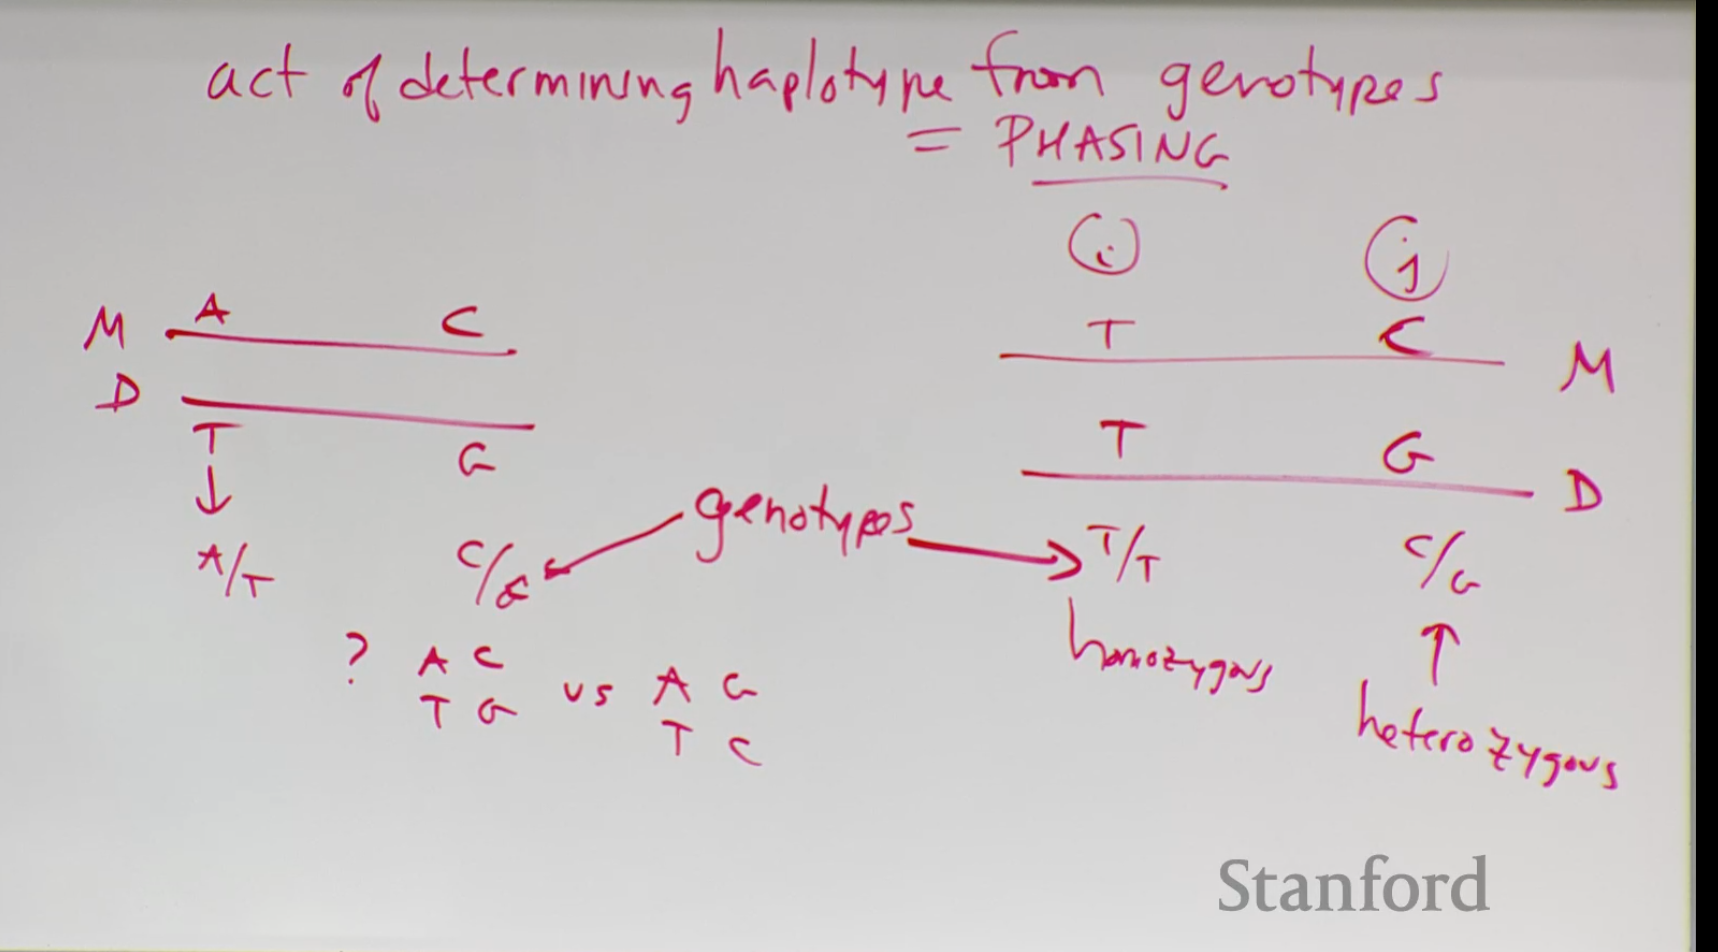 act of determining haplotype from genotypes
= PHASING
i j
M A C
D
T G
A/T C/G
? A C
T G
vs
A G
T C
genotypes
T C M
T G
D
T/T C/G
homozygous
heterozygous
Stanford